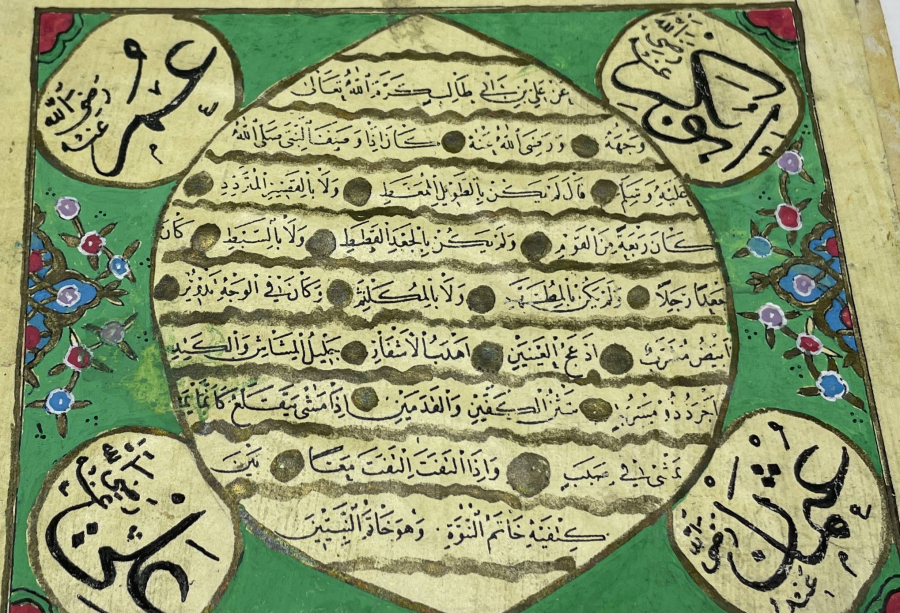 ابو بكر رضى الله عنه
عمر رضى الله عنه
عن علي بن ابي طالب كرم الله تعالى
وجهه ورضى الله عنه كان اذا وصف النبي صلى الله
عليه وسلم قال لم يكن بالطويل الممغط ولا بالقصير المتردد
كان ربعة من القوم ولم يكن بالجعد القطط ولا بالسبط كان
جعدا رجلا ولم يكن بالمطهم ولا بالمكلثم وكان في الوجه تدوير
ابيض مشرب ادعج العينين اهدب الاشفار جليل المشاش والكتد
اجرد ذو مسربة شثن الكفين والقدمين اذا مشى يتقلع كانما
يمشى في صبب واذا التفت التفت معا بين
كتفيه خاتم النبوة وهو خاتم النبيين
عثمان رضى الله عنه
على